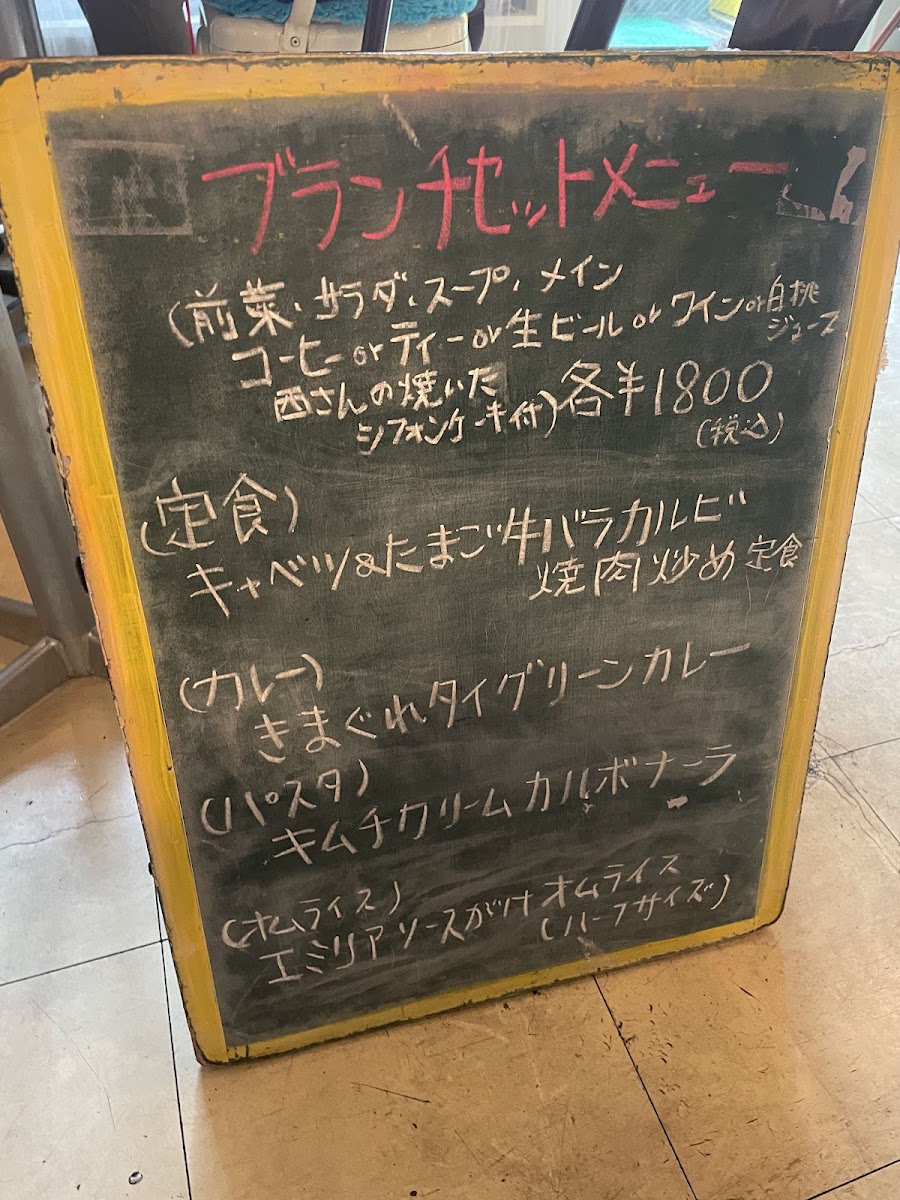 ブランチセットメニュー
(前菜・サラダ・スープ・メイン
コーヒーorティーor生ビールorワインor白桃ジュース
西さんの焼いた
シフォンケーキ付)各¥1800
(税込)
(定食)
キャベツ&たまご牛バラカルビ
焼肉炒め定食
(カレー)
きまぐれタイグリーンカレー
(パスタ)
キムチクリームカルボナーラ
(オムライス)
エミリアソースがけオムライス
(ハーフサイズ)